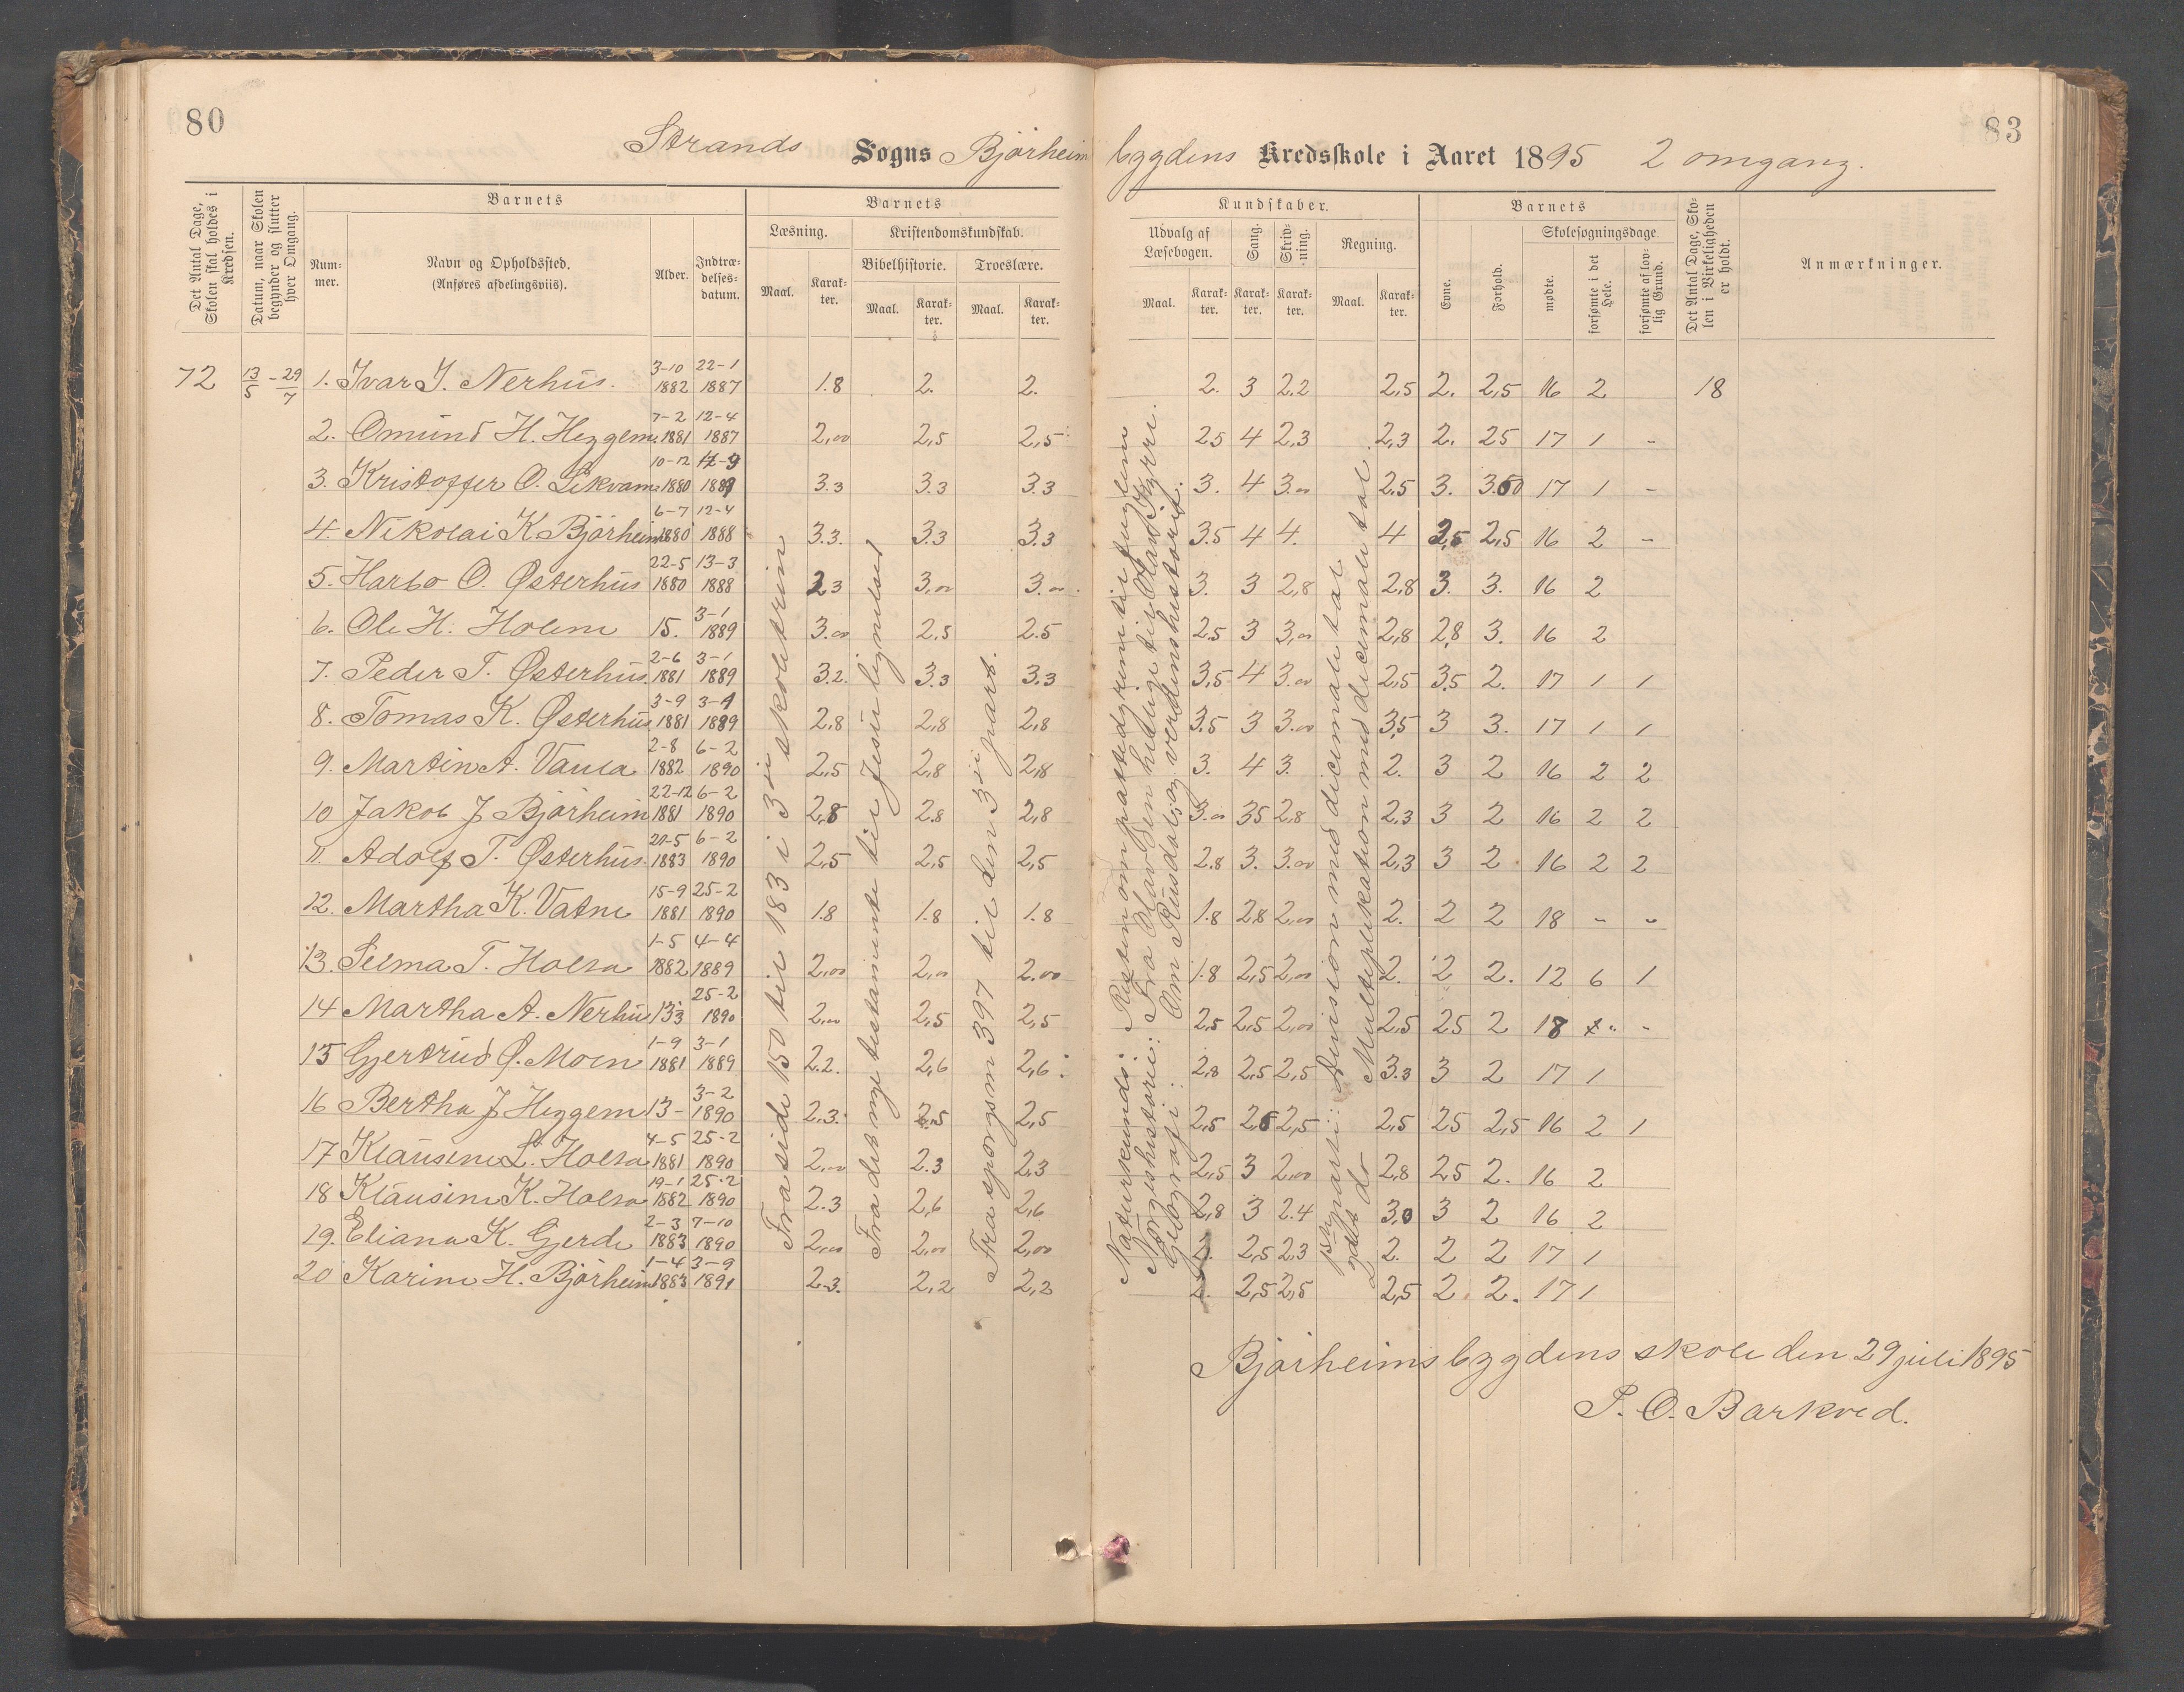 80
83
Strands Sogns Bjørheimbygdens Kredsskole i Aaret 1895 2 omgang.
Det Antal Dage, Skolen skal holdes i Kredsen.
Datum, naar Skolen begynder og slutter hver Omgang.
Barnets
Num-mer.
Navn og Opholdssted.
(Anføres afdelingsviis).
Alder.
Indtræ-delses-datum.
Barnets
Læsning.
Maal.
Karak-ter.
Kristendomskundskab.
Bibelhistorie.
Maal.
Karak-ter.
Troeslære.
Maal.
Karak-ter.
Kundskaber.
Udvalg af Læsebogen.
Maal.
Karak-ter.
Sang.
Karak-ter.
Skriv-ning.
Karak-ter.
Regning.
Maal.
Karak-ter.
Barnets
Evne.
Forhold.
Skolesøgningsdage.
mødte.
forsømte i det Hele.
forsømte af lov-lig Grund.
Det Antal Dage, Sko-len i Virkeligheden er holdt.
Anmærkninger.
72 13/5 - 29/7 1. Ivar I. Nerhus. 3-10 1882 22-1 1887 1.8 2. 2. 2. 3 2.2 2,5 2. 2,5 16 2 18
2. Omund H. Heggem. 7-2 1881 12-4 1887 2,00 2,5 2,5 25 4 2,3 2,3 2. 25 17 1 -
3. Kristoffer O. Lekvam. 10-12 1880 3.3 3.3 3.3 3. 4 3.00 2,5 3. 3.50 17 1 -
4. Nikolai K. Bjørheim 6-7 1880 12-4 1888 3.3. 3.3 3.3 3.5 4 4. 4 2,5 2,5 16 2 -
5. Harbo O. Østerhus 22-5 1880 13-3 1888 2.3 3,00 3.00 3. 3 2,8 2,8 3. 3. 16 2
6. Ole H. Holem 15. 3-1 1889 3.00 2,5 2.5 2,5 3 3,00 2,8 2,8 3. 16 2
7. Peder T. Østerhus. 2-6 1881 3-1 1889 3.2. 3.3 3.3 3,5 4 3.00 2,5 3,5 2. 17 1 1
8. Tomas K. Østerhus 3-9 1881 1889 2,8 2,8 2,8 3.5 3 3.00 3,5 3 3. 17 1 1
9. Martin A. 2-8 1882 6-2 1890 2,5 2,8 2,8 3. 4 3. 2. 3 2 16 2 2
10 Jakob J Bjørheim 22-12 1881 6-2 1890 2,8 2.8 2,8 3.00 35 2,8 2,3 3 2 16 2 2
11. Adolf T. Østerhus. 20-5 1883 6-2 1890 2,5 2,5 2,5 2.8 3. 3.00 2,3 3 2 16 2 2
12. Martha K. Vatne 15-9 1881 25-2 1890 1.8 1.8 1.8 1.8 2,8 2,00 2. 2 2 18 - -
13. Selma T. Holta 1-5 1882 4-4 1889 2,00 2,00 2.00 1.8 2,5 2,00 2. 2 2. 12 6 1
14 Martha A. Nerhus 25-2 1890 2,00 2,5 2,5 2,5 2,5 2,00 2,5 25 2 18 -
15 Gjertrud Ø. Moen 1-9 1881 3-1 1889 2.2. 2,6 2,6 2,8 2,5 2,5 3.3 3 2 17 1
16 Bertha J Heggem 13- 3-2 1890 2,3. 2,5 2,5 2,5 2,5 2,5 2,5 25 2,5 16 2 1
17 Klausine L. Holta 4-5 1881 25-2 1890 2,00 2.3 2,3 2,5 3 2,00 2,8 25 2. 16 2
18 Klausine K. Holta 19-1 1882 25-2 1890 2.3 2,6 2,6 2,8 3 2.4 3,0 3 2 16 2
19. Eliana K. Gjerde 2-3 1883 7-10 1890 2,00 2,00 2,00 2. 2,5 2,3 2. 2 2 17 1
20 Karine H. Bjørheim 1-4 1883 3-9 1891 2.3. 2,2 2,2 2. 2,5 2,5 2,5 2 2. 17 1
Fra side 150 til 183 i 3die skoletrin
Fra det nye testamente til Jesu lignelser
Fra spørgsm 397 til den 3die part.
Naturkunds: Resten om pattedyrene til fuglene
Norgeshistorie: Fra Olav den hellige til Olav Kyrri.
Geografi: Om Rusdal og verdenshistorie.
1ste parti: Division med decimale tal
2det do Multiplikation med decimale tal.
Bjørheimsbygdens skole den 29 juli 1895
P. O. Barkved.